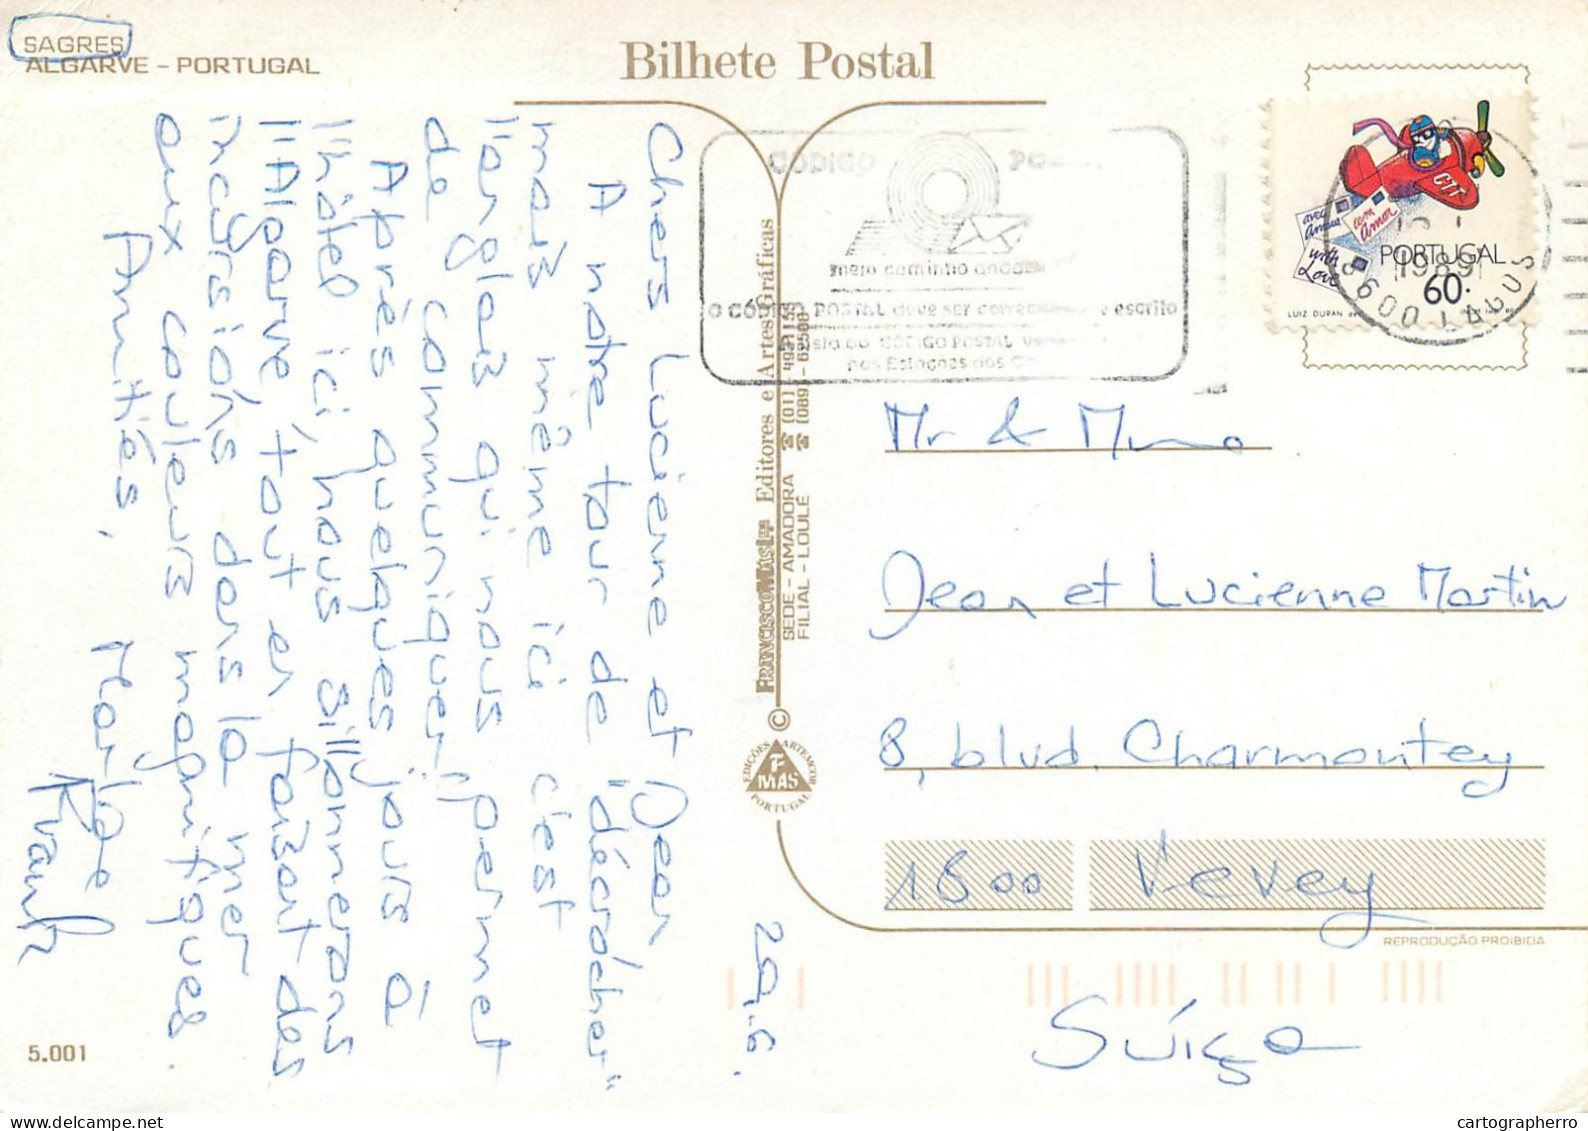 SAGRES
ALGARVE - PORTUGAL
Bilhete Postal
Chers Lucienne et Jean
A notre tour de "décrocher"
mais même ici c'est
l'anglais qui nous permet
de communiquer!
Après quelques jours à
l'hôtel ici, nous sillonnerons
l'Algarve, tout en faisant des
incursions dans la mer
aux couleurs magnifiques.
Amitiés,
29.6.
5.001
FRANCISCO MAS LDA Editores e Artes Gráficas
SEDE - AMADORA
FILIAL - LOULÉ
©
EDIÇÕES ARTEMCOR
F
MAS
PORTUGAL
CÓDIGO
meio caminho andado
O CÓDIGO POSTAL deve ser escrito
CÓDIGO POSTAL
nas Estações dos
CTT
avec Amour
com Amor
with Love
PORTUGAL
60.
LUIZ DURAN
1989
8600 LAGOS
Mr & Mme
Jean et Lucienne Martin
8, blvd. Charmontey
1800 Vevey
REPRODUÇÃO PROIBIDA
Suíça
cartographerro